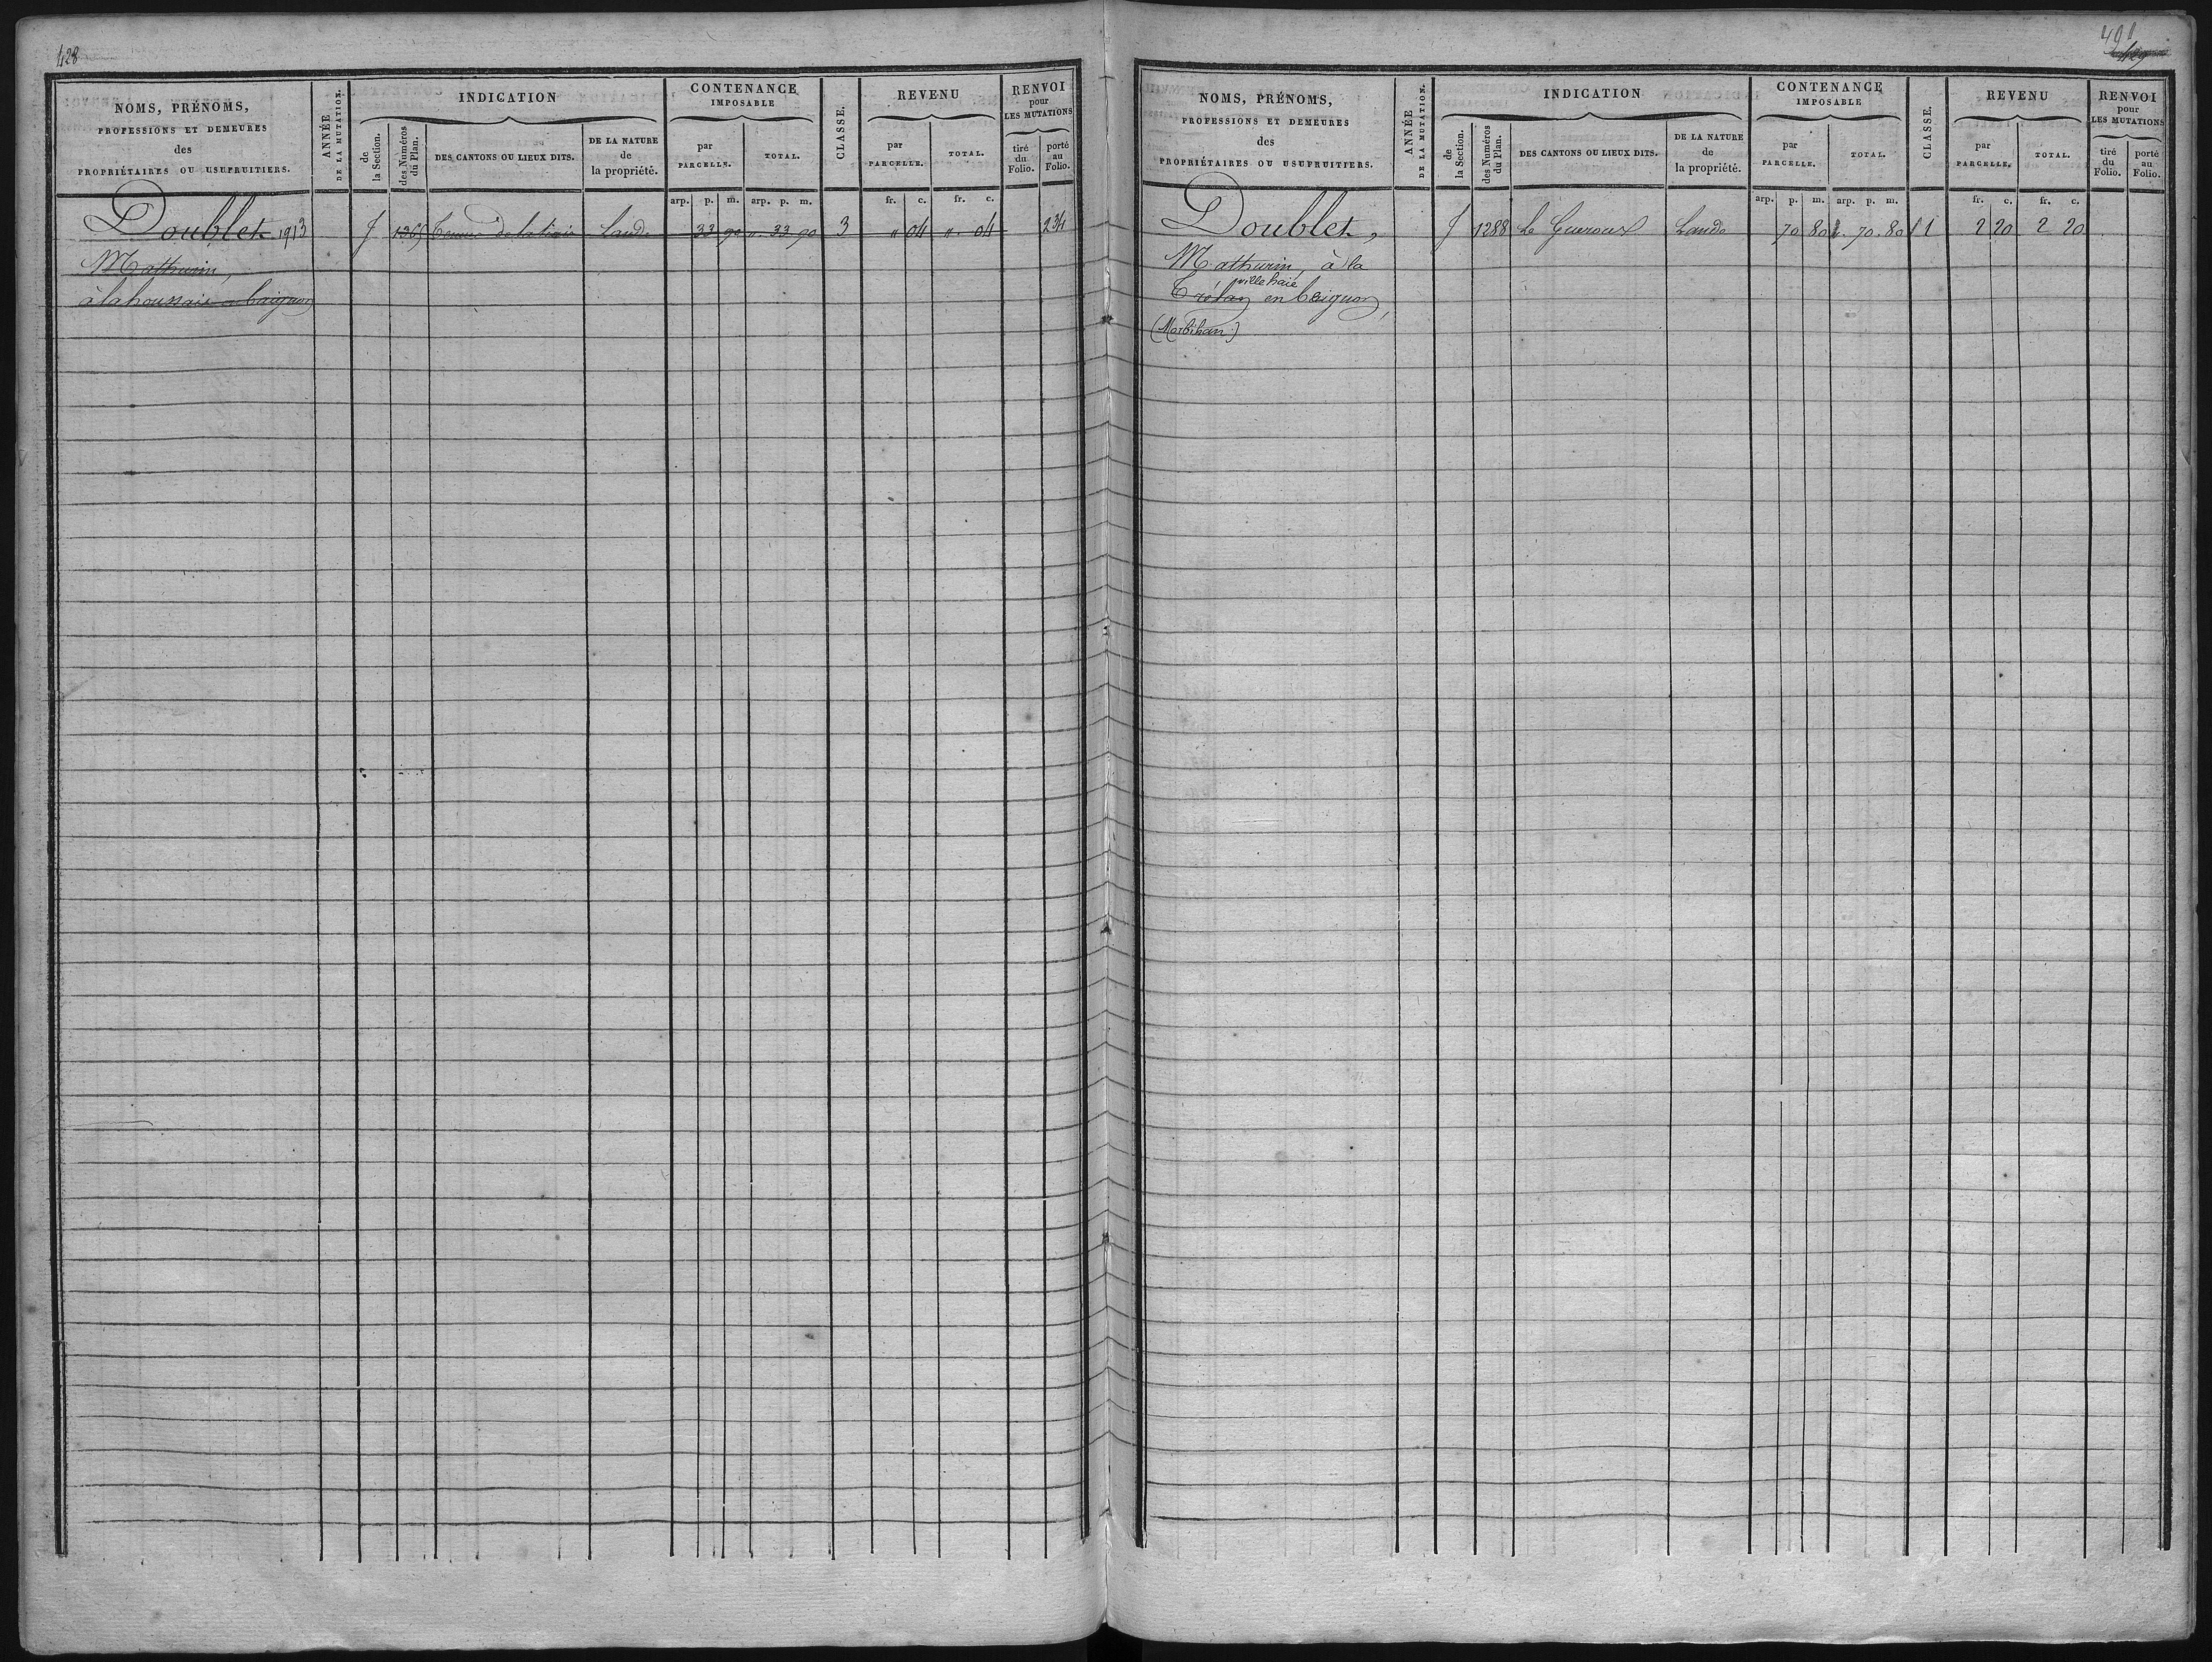 428
NOMS, PRÉNOMS,
PROFESSIONS ET DEMEURES
des
PROPRIÉTAIRES OU USUFRUITIERS.
ANNÉE
DE LA MUTATION.
INDICATION
de
la Section.
des Numéros
du Plan.
DES CANTONS OU LIEUX DITS.
DE LA NATURE
de
la propriété.
CONTENANCE
IMPOSABLE
par
PARCELLE.
TOTAL.
CLASSE.
REVENU
par
PARCELLE.
TOTAL.
RENVOI
pour
LES MUTATIONS
tiré
du
Folio.
porté
au
Folio.
arp. p. m. arp. p. m. fr. c. fr. c.
Doublet 1913 J de la Lande 33 90 " 33 90 3 " 04 " 04 234
Mathurin,
à la houssaie
491
429
NOMS, PRÉNOMS,
PROFESSIONS ET DEMEURES
des
PROPRIÉTAIRES OU USUFRUITIERS.
ANNÉE
DE LA MUTATION.
INDICATION
de
la Section.
des Numéros
du Plan.
DES CANTONS OU LIEUX DITS.
DE LA NATURE
de
la propriété.
CONTENANCE
IMPOSABLE
par
PARCELLE.
TOTAL.
CLASSE.
REVENU
par
PARCELLE.
TOTAL.
RENVOI
pour
LES MUTATIONS
tiré
du
Folio.
porté
au
Folio.
arp. p. m. arp. p. m. fr. c. fr. c.
Doublet, J 1288 Le Gueroux Lande 70 80 70 80 1 2 20 2 20
Mathurin, à la
ville haie
en Beignon,
(Morbihan)